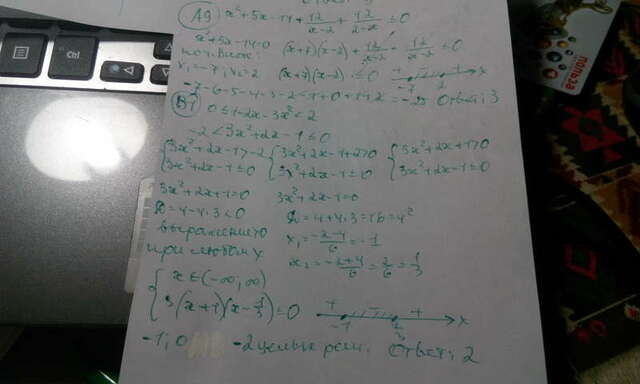 A9 x²+5x-14+12/(x-2)+12/(2-x)≤0
x²+5x-14=0 (x+7)(x-2)+12/(x-2)-12/(x-2)≤0
x₁=-7, x₂=2 (x+7)(x-2)≤0 + - + x
-7 2
-7-6-5-4-3-2-1+0+1+2=-25 Ответ: 3
B1 0≤1-2x-3x²<2
-2<3x²+2x-1≤0
{3x²+2x-1>-2 {3x²+2x-1+2>0 {3x²+2x+1>0
3x²+2x-1≤0 3x²+2x-1≤0 3x²+2x-1≤0
3x²+2x+1=0 3x²+2x-1=0
D=4-4·3<0 D=4+4·3=16=4²
выражение>0 x₁=(-2-4)/6=-1
при любом x x₂=(-2+4)/6=2/6=1/3
{x∈(-∞,∞)
3(x+1)(x-1/3)≤0 + - + x
-1
-1; 0 -2 целых реш. Ответ: 2
Ctrl
польза